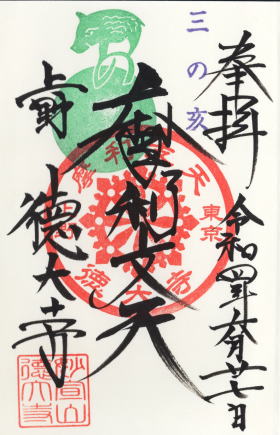 奉拝
三の亥
令和四年六月廿七日
摩利支天
上野
徳大寺
東京
妙宣山
徳大寺